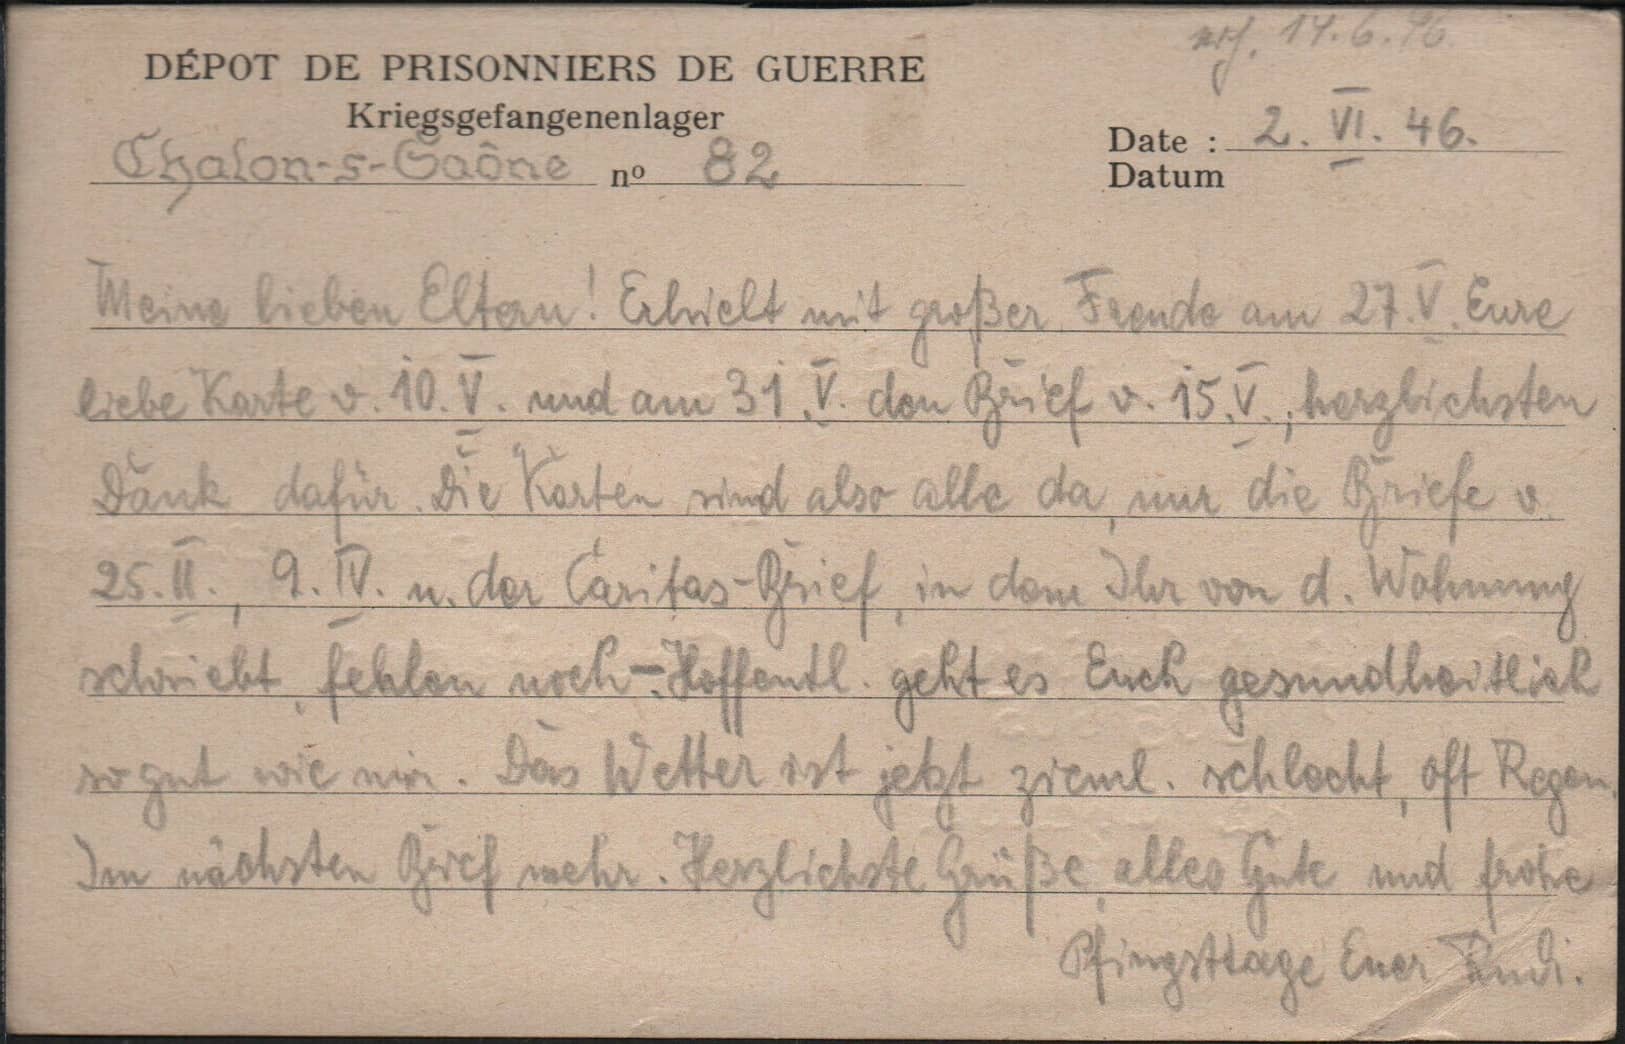 14.6.46
DÉPOT DE PRISONNIERS DE GUERRE
Kriegsgefangenenlager
Chalon-s-Saône nº 82
Date : 2. VI. 46.
Datum
Meine lieben Eltern! Erhielt mit großer Freude am 27. V. Eure
liebe Karte v. 10. V. und am 31. V. den Brief v. 15. V., herzlichsten
Dank dafür. Die Karten sind also alle da, nur die Briefe v.
25. II., 9. IV. u. der Caritas-Brief, in dem Ihr von d. Wohnung
schriebt, fehlen noch. – Hoffentl. geht es Euch gesundheitlich
so gut wie mir. Das Wetter ist jetzt zieml. schlecht, oft Regen.
Im nächsten Brief mehr. Herzlichste Grüße, alles Gute und frohe
Pfingsttage Euer Rudi.